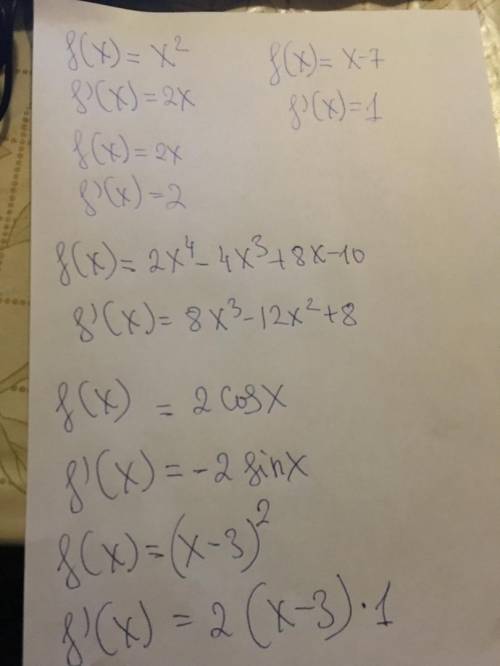 f(x) = x²
f'(x) = 2x
f(x) = 2x
f'(x) = 2
f(x) = x-7
f'(x) = 1
f(x) = 2x⁴ - 4x³ + 8x - 10
f'(x) = 8x³ - 12x² + 8
f(x) = 2 cosx
f'(x) = -2 sinx
f(x) = (x-3)²
f'(x) = 2 (x-3) · 1